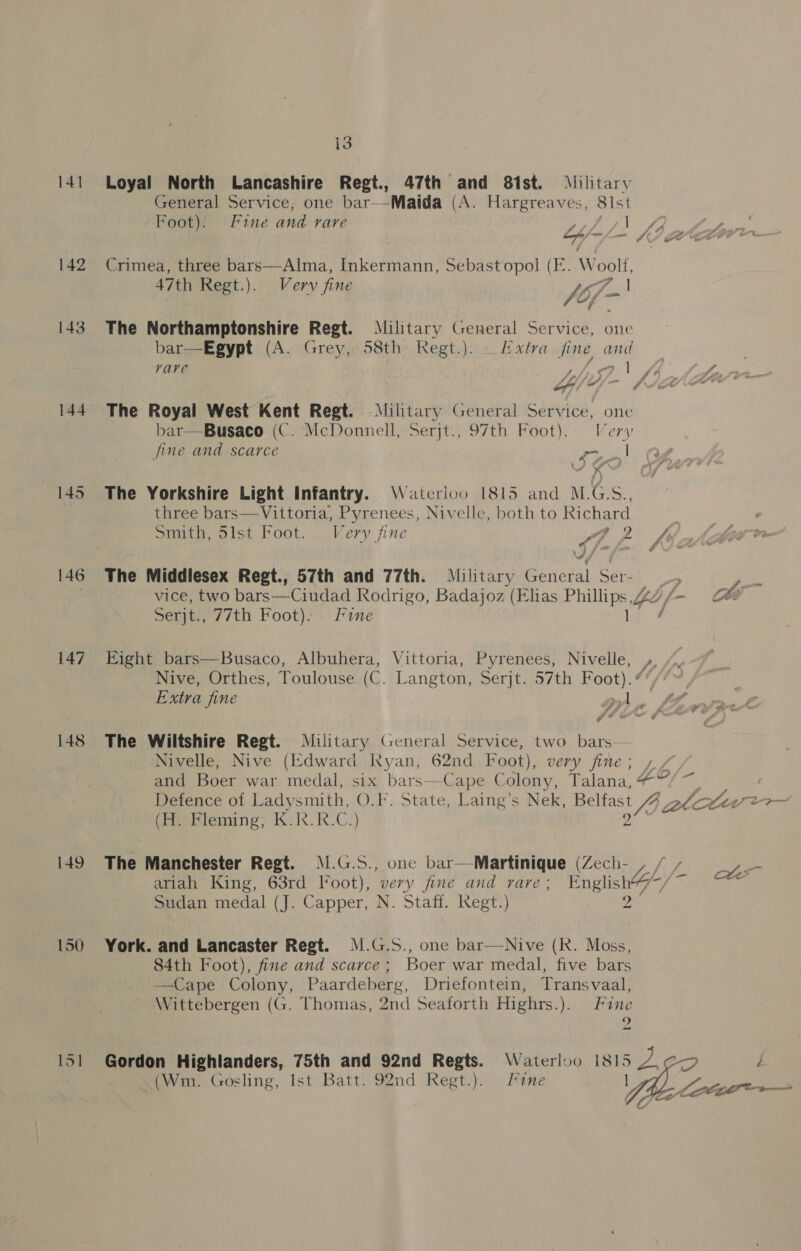 13
141 Loyal North Lancashire Regt., 47th and 81st. Military
General Service, one bar—Maida (A. Hargreaves, 81st
Foot). Fine and rare 1
142 Crimea, three bars—Alma, Inkermann, Sebastopol (E. Woolf,
47th Regt.). Very fine 1
143 The Northamptonshire Regt. Military General Service, one
bar—Egypt (A. Grey, 58th Regt.). Extra fine and
rare 1
144 The Royal West Kent Regt. Military General Service, one
bar—Busaco (C. McDonnell, Serjt., 97th Foot). Very
fine and scarce 1
145 The Yorkshire Light Infantry. Waterloo 1815 and M.G.S.,
three bars—Vittoria, Pyrenees, Nivelle, both to Richard
Smith, 51st Foot. Very fine 2
146 The Middlesex Regt., 57th and 77th. Military General Ser-
vice, two bars—Ciudad Rodrigo, Badajoz (Elias Phillips,
Serjt., 77th Foot). Fine 1
147 Eight bars—Busaco, Albuhera, Vittoria, Pyrenees, Nivelle,
Nive, Orthes, Toulouse (C. Langton, Serjt. 57th Foot).
Extra fine 1
148 The Wiltshire Regt. Military General Service, two bars—
Nivelle, Nive (Edward Ryan, 62nd Foot), very fine;
and Boer war medal, six bars—Cape Colony, Talana,
Defence of Ladysmith, O.F. State, Laing's Nek, Belfast
(H. Fleming, K.R.R.C.) 2
149 The Manchester Regt. M.G.S., one bar—Martinique (Zech-
ariah King, 63rd Foot), very fine and rare; English
Sudan medal (J. Capper, N. Staff. Regt.) 2
150 York. and Lancaster Regt. M.G.S., one bar—Nive (R. Moss,
84th Foot), fine and scarce; Boer war medal, five bars
—Cape Colony, Paardeberg, Driefontein, Transvaal,
Wittebergen (G. Thomas, 2nd Seaforth Highrs.). Fine
2
151 Gordon Highlanders, 75th and 92nd Regts. Waterloo 1815
(Wm. Gosling, 1st Batt. 92nd Regt.). Fine 1